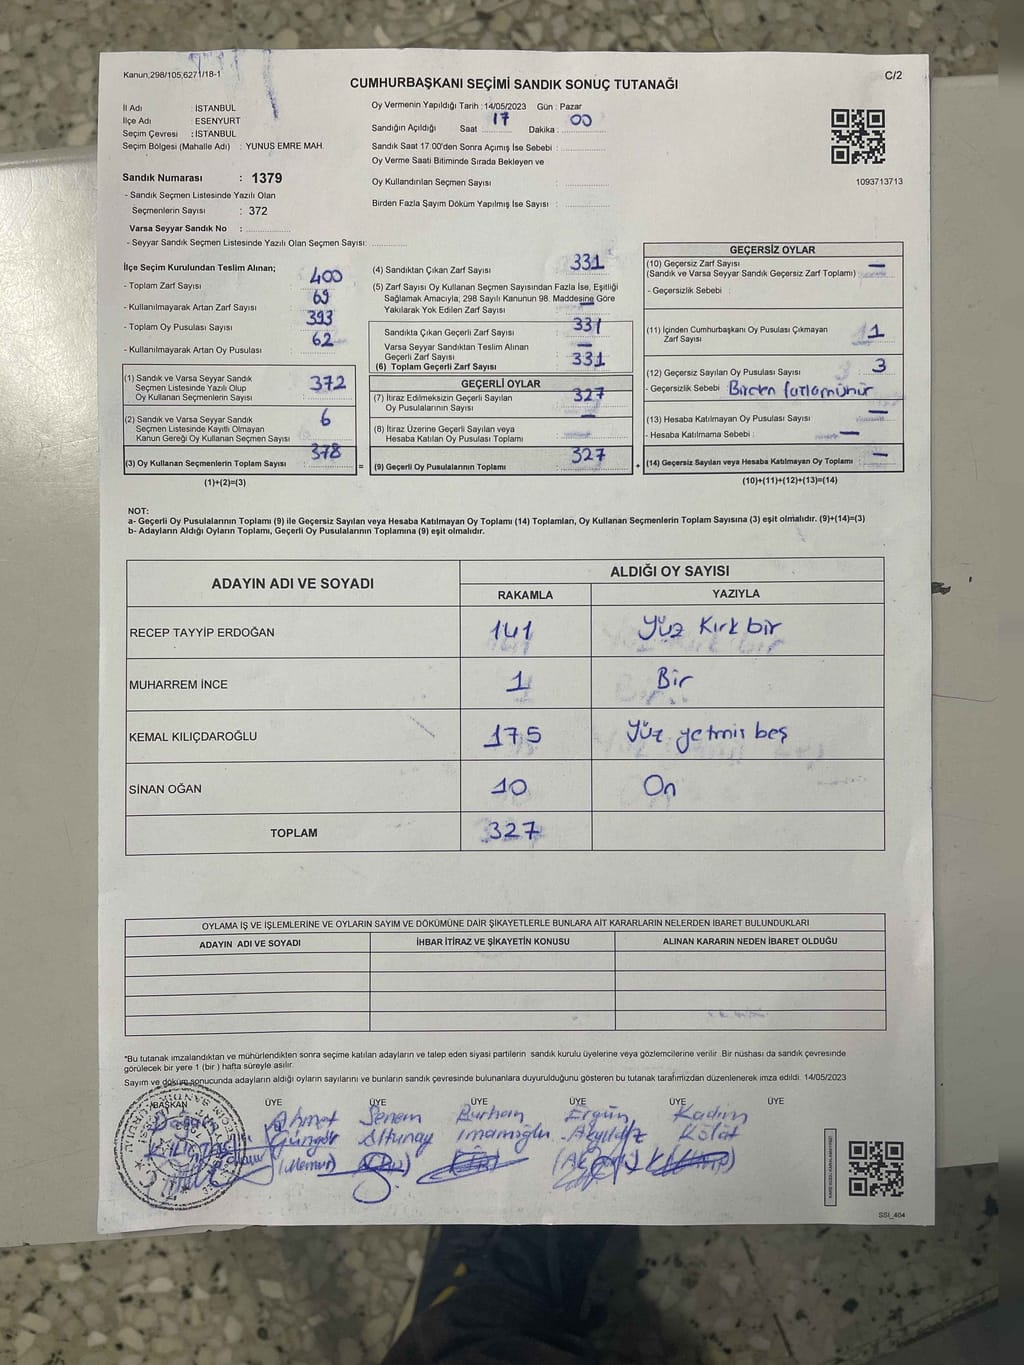 Kanun,298/105,627/18-1
C/2
CUMHURBAŞKANI SEÇİMİ SANDIK SONUÇ TUTANAĞI
İl Adı : İSTANBUL
İlçe Adı : ESENYURT
Seçim Çevresi : İSTANBUL
Seçim Bölgesi (Mahalle Adı) : YUNUS EMRE MAH.
Sandık Numarası : 1379
- Sandık Seçmen Listesinde Yazılı Olan
Seçmenlerin Sayısı : 372
Varsa Seyyar Sandık No :
- Seyyar Sandık Seçmen Listesinde Yazılı Olan Seçmen Sayısı:
Oy Vermenin Yapıldığı Tarih : 14/05/2023 Gün : Pazar
Sandığın Açıldığı Saat 17 Dakika : 00
Sandık Saat 17:00'den Sonra Açımış İse Sebebi :
Oy Verme Saati Bitiminde Sırada Bekleyen ve
Oy Kullandırılan Seçmen Sayısı :
Birden Fazla Sayım Döküm Yapılmış İse Sayısı :
1093713713
İlçe Seçim Kurulundan Teslim Alınan;
- Toplam Zarf Sayısı : 400
- Kullanılmayarak Artan Zarf Sayısı : 69
- Toplam Oy Pusulası Sayısı : 393
- Kullanılmayarak Artan Oy Pusulası : 62
(1) Sandık ve Varsa Seyyar Sandık
Seçmen Listesinde Yazılı Olup
Oy Kullanan Seçmenlerin Sayısı : 372
(2) Sandık ve Varsa Seyyar Sandık
Seçmen Listesinde Kayıtlı Olmayan
Kanun Gereği Oy Kullanan Seçmen Sayısı : 6
(3) Oy Kullanan Seçmenlerin Toplam Sayısı : 378
(1)+(2)=(3)
(4) Sandıktan Çıkan Zarf Sayısı : 331
(5) Zarf Sayısı Oy Kullanan Seçmen Sayısından Fazla İse, Eşitliği
Sağlamak Amacıyla; 298 Sayılı Kanunun 98. Maddesine Göre
Yakılarak Yok Edilen Zarf Sayısı : —
Sandıkta Çıkan Geçerli Zarf Sayısı : 331
Varsa Seyyar Sandıktan Teslim Alınan
Geçerli Zarf Sayısı : —
(6) Toplam Geçerli Zarf Sayısı : 331
GEÇERLİ OYLAR
(7) İtiraz Edilmeksizin Geçerli Sayılan
Oy Pusulalarının Sayısı : 327
(8) İtiraz Üzerine Geçerli Sayılan veya
Hesaba Katılan Oy Pusulası Toplamı : —
= (9) Geçerli Oy Pusulalarının Toplamı : 327 +
GEÇERSİZ OYLAR
(10) Geçersiz Zarf Sayısı
(Sandık ve Varsa Seyyar Sandık Geçersiz Zarf Toplamı) : —
- Geçersizlik Sebebi :
(11) İçinden Cumhurbaşkanı Oy Pusulası Çıkmayan
Zarf Sayısı : 1
(12) Geçersiz Sayılan Oy Pusulası Sayısı : 3
- Geçersizlik Sebebi : Birden fazla mühür
(13) Hesaba Katılmayan Oy Pusulası Sayısı : —
- Hesaba Katılmama Sebebi : —
(14) Geçersiz Sayılan veya Hesaba Katılmayan Oy Toplamı : —
(10)+(11)+(12)+(13)=(14)
NOT:
a- Geçerli Oy Pusulalarının Toplamı (9) ile Geçersiz Sayılan veya Hesaba Katılmayan Oy Toplamı (14) Toplamları, Oy Kullanan Seçmenlerin Toplam Sayısına (3) eşit olmalıdır. (9)+(14)=(3)
b- Adayların Aldığı Oyların Toplamı, Geçerli Oy Pusulalarının Toplamına (9) eşit olmalıdır.
ADAYIN ADI VE SOYADI ALDIĞI OY SAYISI
RAKAMLA YAZIYLA
RECEP TAYYİP ERDOĞAN 141 Yüz Kırk bir
MUHARREM İNCE 1 Bir
KEMAL KILIÇDAROĞLU 175 Yüz yetmiş beş
SİNAN OĞAN 10 On
TOPLAM 327
OYLAMA İŞ VE İŞLEMLERİNE VE OYLARIN SAYIM VE DÖKÜMÜNE DAİR ŞİKAYETLERLE BUNLARA AİT KARARLARIN NELERDEN İBARET BULUNDUKLARI
ADAYIN ADI VE SOYADI İHBAR İTİRAZ VE ŞİKAYETİN KONUSU ALINAN KARARIN NEDEN İBARET OLDUĞU
*Bu tutanak imzalandıktan ve mühürlendikten sonra seçime katılan adayların ve talep eden siyasi partilerin sandık kurulu üyelerine veya gözlemcilerine verilir. Bir nüshası da sandık çevresinde
görülecek bir yere 1 (bir ) hafta süreyle asılır.
Sayım ve döküm sonucunda adayların aldığı oyların sayılarını ve bunların sandık çevresinde bulunanlara duyurulduğunu gösteren bu tutanak tarafımızdan düzenlenerek imza edildi. 14/05/2023
BAŞKAN ÜYE ÜYE ÜYE ÜYE ÜYE ÜYE
Ahmet Senem Burhan Ergün Kadim
Güngör Altunay İmamoğlu Akyıldız Külat
(Memur)
SSİ_404